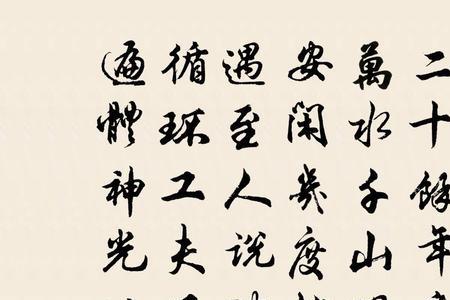 二十餘年
萬水千山
安閑幾度
遇至人说
循环工夫
遍體神光